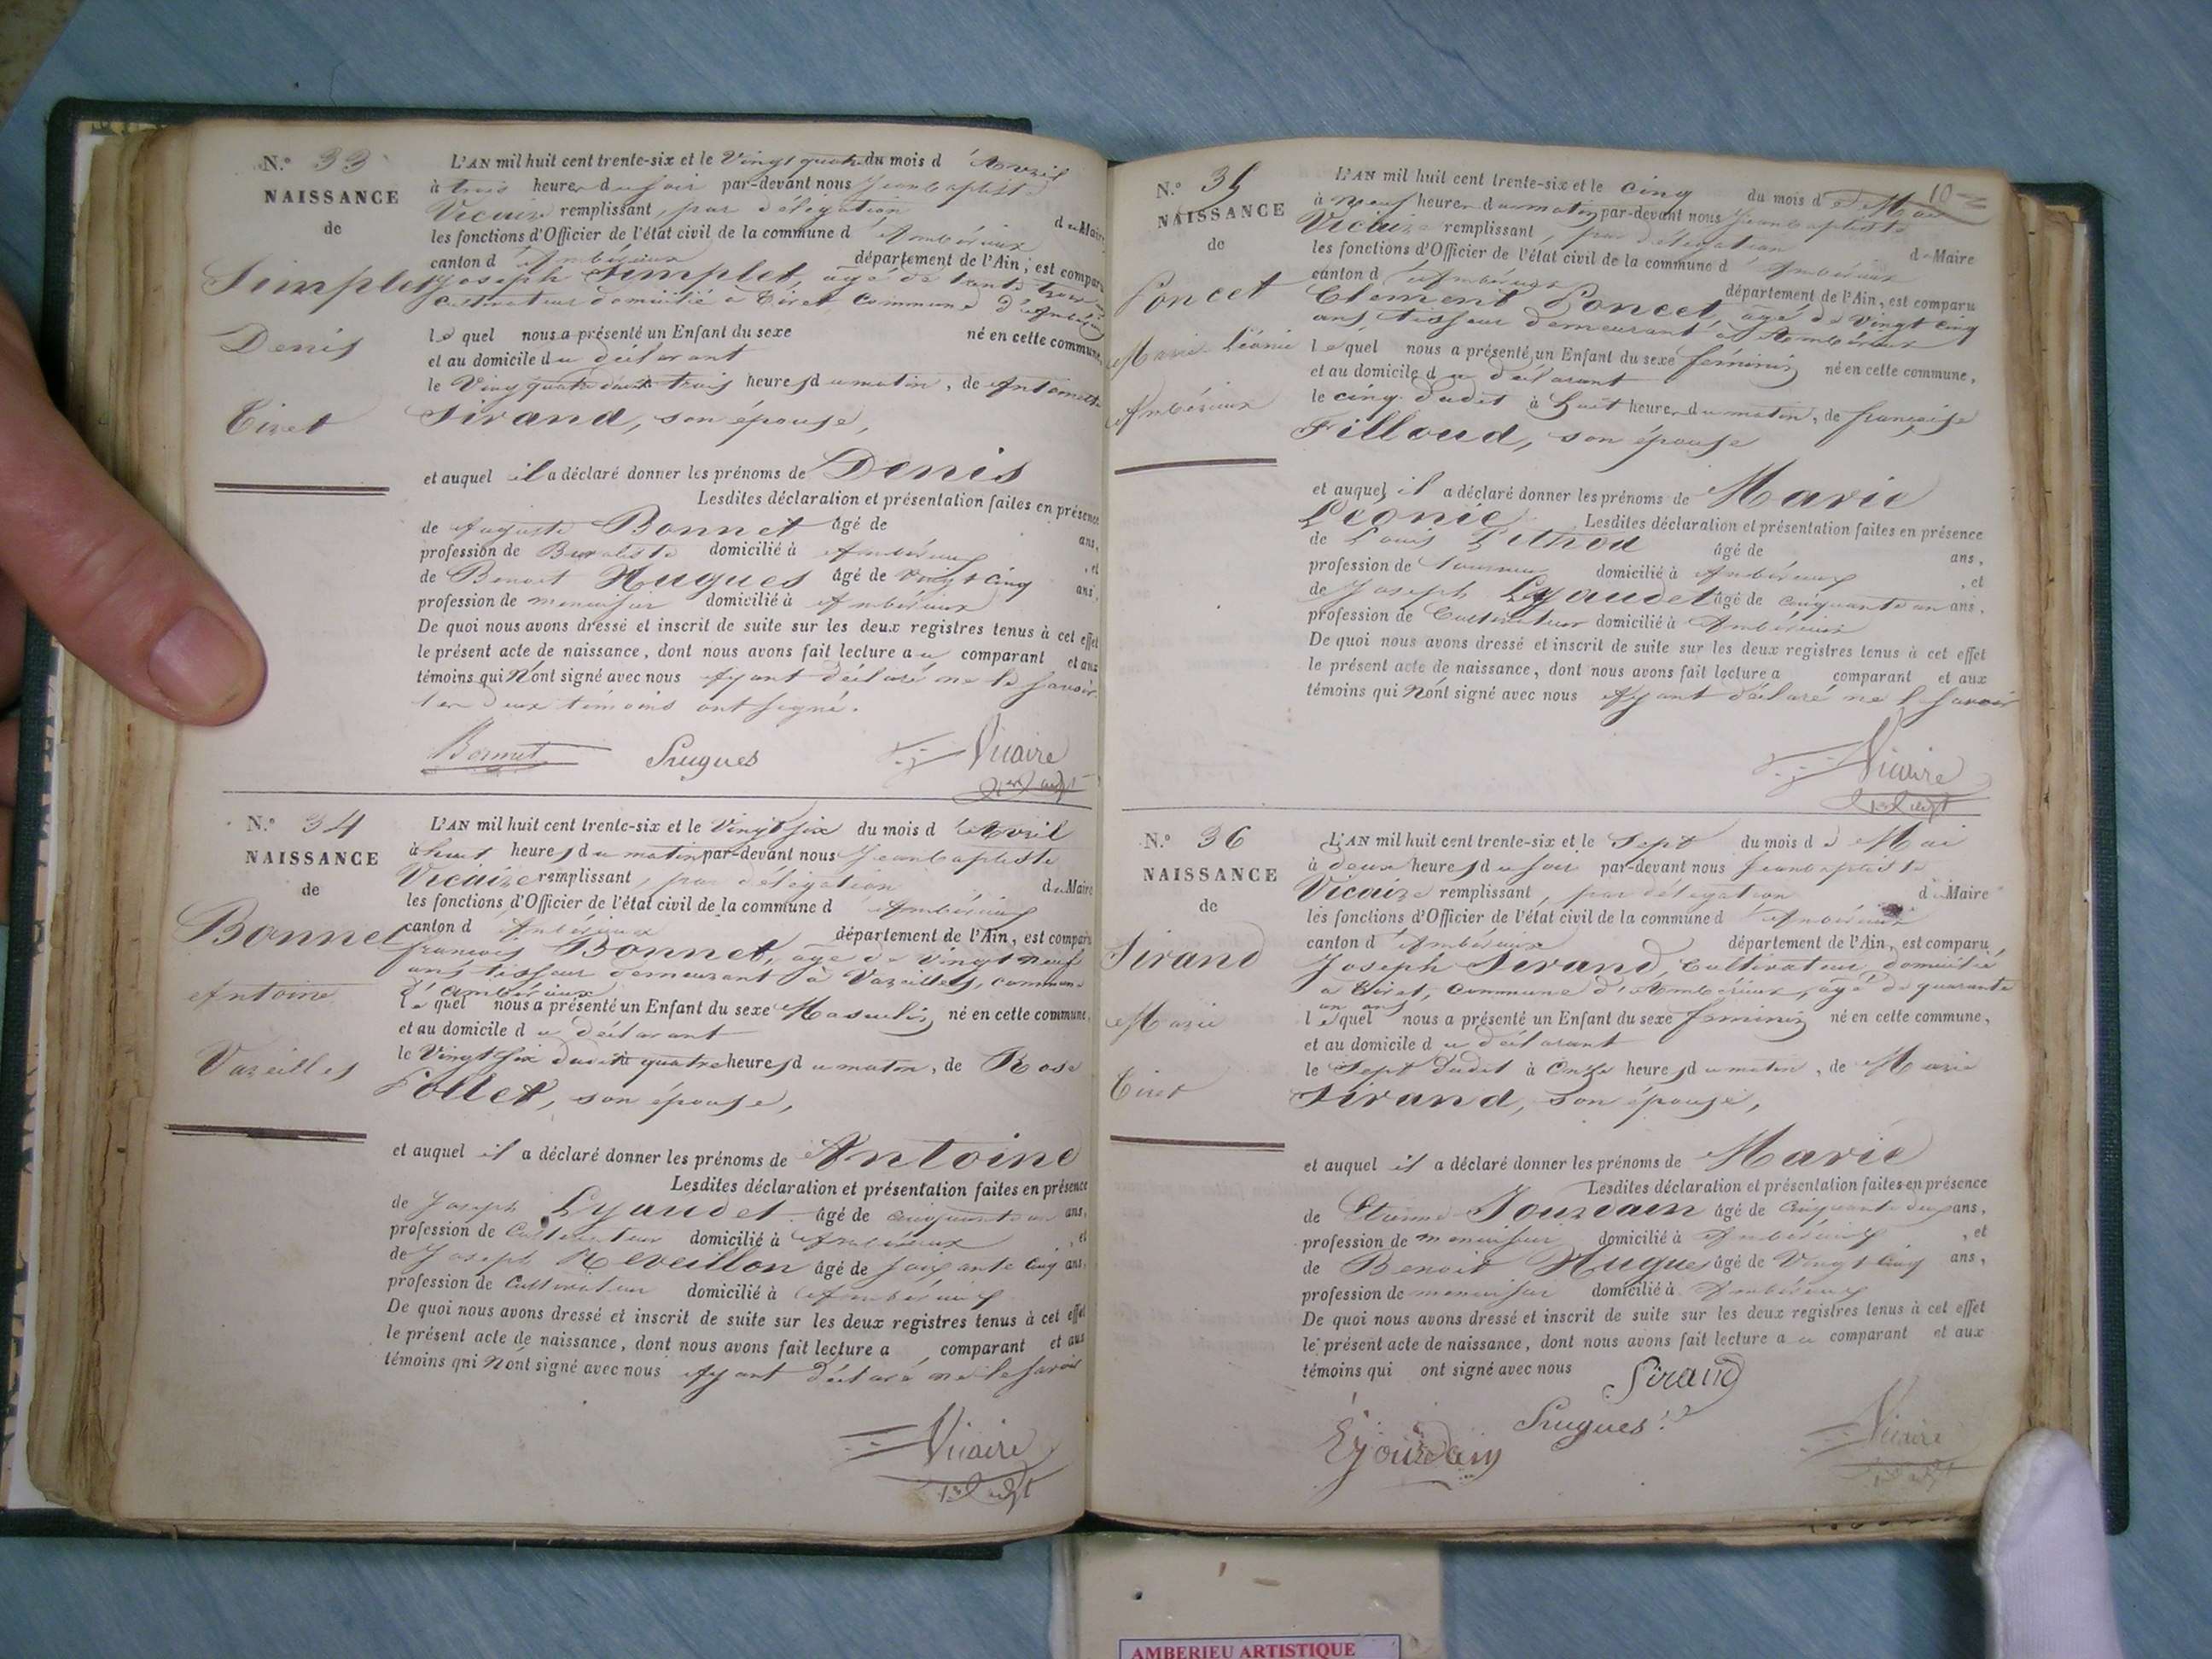 N.º 33
NAISSANCE
de
Simplet
Denis
Tiret
L'AN mil huit cent trente-six et le Vingt quatre du mois d'Avril
à trois heures du soir par-devant nous Jean baptiste
Vicaire remplissant, par délégation du Maire
les fonctions d'Officier de l'état civil de la commune d'Ambérieux
canton d'Ambérieux département de l'Ain, est comparu
Joseph Simplet, âgé de trente trois
cultivateur domicilié à Tiret, Commune d'Ambérieux
lequel nous a présenté un Enfant du sexe né en cette commune,
et au domicile du déclarant
le Vingt quatre dudit trois heures du matin, de Antoinette
Sirand, son épouse,
et auquel il a déclaré donner les prénoms de Denis
Lesdites déclaration et présentation faites en présence
de Auguste Bonnet âgé de ans,
profession de Buraliste domicilié à Ambérieux, et
de Benoit Hugues âgé de vingt cinq ans,
profession de menuisier domicilié à Ambérieux
De quoi nous avons dressé et inscrit de suite sur les deux registres tenus à cet effet
le présent acte de naissance, dont nous avons fait lecture au comparant et aux
témoins qui N'ont signé avec nous Ayant déclaré ne le savoir.
les deux témoins ont signé.
Bonnet Hugues Vicaire
N.º 34
NAISSANCE
de
Bonnet
Antoine
Vareilles
L'AN mil huit cent trente-six et le Vingt six du mois d'Avril
à huit heures du matin par-devant nous Jean baptiste
Vicaire remplissant, par délégation du Maire
les fonctions d'Officier de l'état civil de la commune d'Ambérieux
canton d'Ambérieux département de l'Ain, est comparu
françois Bonnet, âgé de vingt neuf
ans, tisseur demeurant à Vareilles, commune
d'Ambérieux
lequel nous a présenté un Enfant du sexe Masculin, né en cette commune,
et au domicile du déclarant
le Vingt six dudit à quatre heures du matin, de Rose
Pollet, son épouse,
et auquel il a déclaré donner les prénoms de Antoine
Lesdites déclaration et présentation faites en présence
de Joseph Lyaudet âgé de cinquante un ans,
profession de Cultivateur domicilié à Ambérieux, et
de Joseph Reveillon âgé de soixante cinq ans,
profession de Cultivateur domicilié à Ambérieux
De quoi nous avons dressé et inscrit de suite sur les deux registres tenus à cet effet
le présent acte de naissance, dont nous avons fait lecture a comparant et aux
témoins qui N'ont signé avec nous Ayant déclaré ne le savoir
Vicaire
10
N.º 35
NAISSANCE
de
Poncet
Marie Léonie
Ambérieux
L'AN mil huit cent trente-six et le cinq du mois de Mai
à neuf heures du matin par-devant nous Jean baptiste
Vicaire remplissant, par délégation du Maire
les fonctions d'Officier de l'état civil de la commune d'Ambérieux
canton d'Ambérieux département de l'Ain, est comparu
Clement Poncet, âgé de vingt cinq
ans tisseur demeurant à Ambérieux
lequel nous a présenté un Enfant du sexe féminin né en cette commune,
et au domicile du déclarant
le cinq dudit à huit heures du matin, de françoise
Filloud, son épouse
et auquel il a déclaré donner les prénoms de Marie
Léonie Lesdites déclaration et présentation faites en présence
de Louis âgé de ans,
profession de domicilié à Ambérieux, et
de Joseph Lyaudet âgé de cinquante un ans,
profession de Cultivateur domicilié à Ambérieux
De quoi nous avons dressé et inscrit de suite sur les deux registres tenus à cet effet
le présent acte de naissance, dont nous avons fait lecture a comparant et aux
témoins qui N'ont signé avec nous Ayant déclaré ne l savoir
Vicaire
N.º 36
NAISSANCE
de
Sirand
Marie
Tiret
L'AN mil huit cent trente-six et le Sept du mois de Mai
à deux heures du soir par-devant nous Jean baptiste
Vicaire remplissant, par délégation du Maire
les fonctions d'Officier de l'état civil de la commune d'Ambérieux
canton d'Ambérieux département de l'Ain, est comparu
Joseph Sirand, Cultivateur domicilié
à Tiret, Commune d'Ambérieux, âgé de quarante
un ans
lequel nous a présenté un Enfant du sexe féminin né en cette commune,
et au domicile du déclarant
le Sept dudit à Onze heures du matin, de Marie
Sirand, son épouse,
et auquel il a déclaré donner les prénoms de Marie
Lesdites déclaration et présentation faites en présence
de Etienne Jourdain âgé de Cinquante deux ans,
profession de menuisier domicilié à Ambérieux, et
de Benoit Hugues âgé de Vingt cinq ans,
profession de menuisier domicilié à Ambérieux
De quoi nous avons dressé et inscrit de suite sur les deux registres tenus à cet effet
le présent acte de naissance, dont nous avons fait lecture au comparant et aux
témoins qui ont signé avec nous Sirand
Ejourdain Hugues Vicaire
AMBERIEU ARTISTIQUE